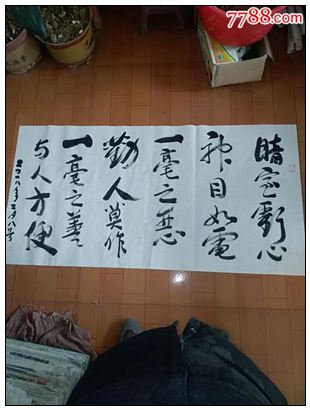 7788.com
暗室虧心
神目如電
一毫之恶
勸人莫作
一毫之善
与人方便